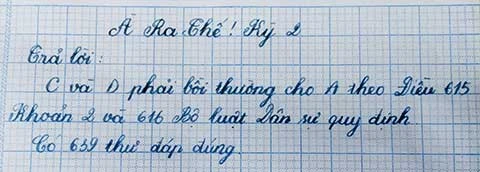 À Ra Thế! Kỳ 2
Trả lời:
C và D phải bồi thường cho A theo Điều 615
Khoản 2 và 616 Bộ luật Dân sự quy định.
Có 659 thư đáp đúng.